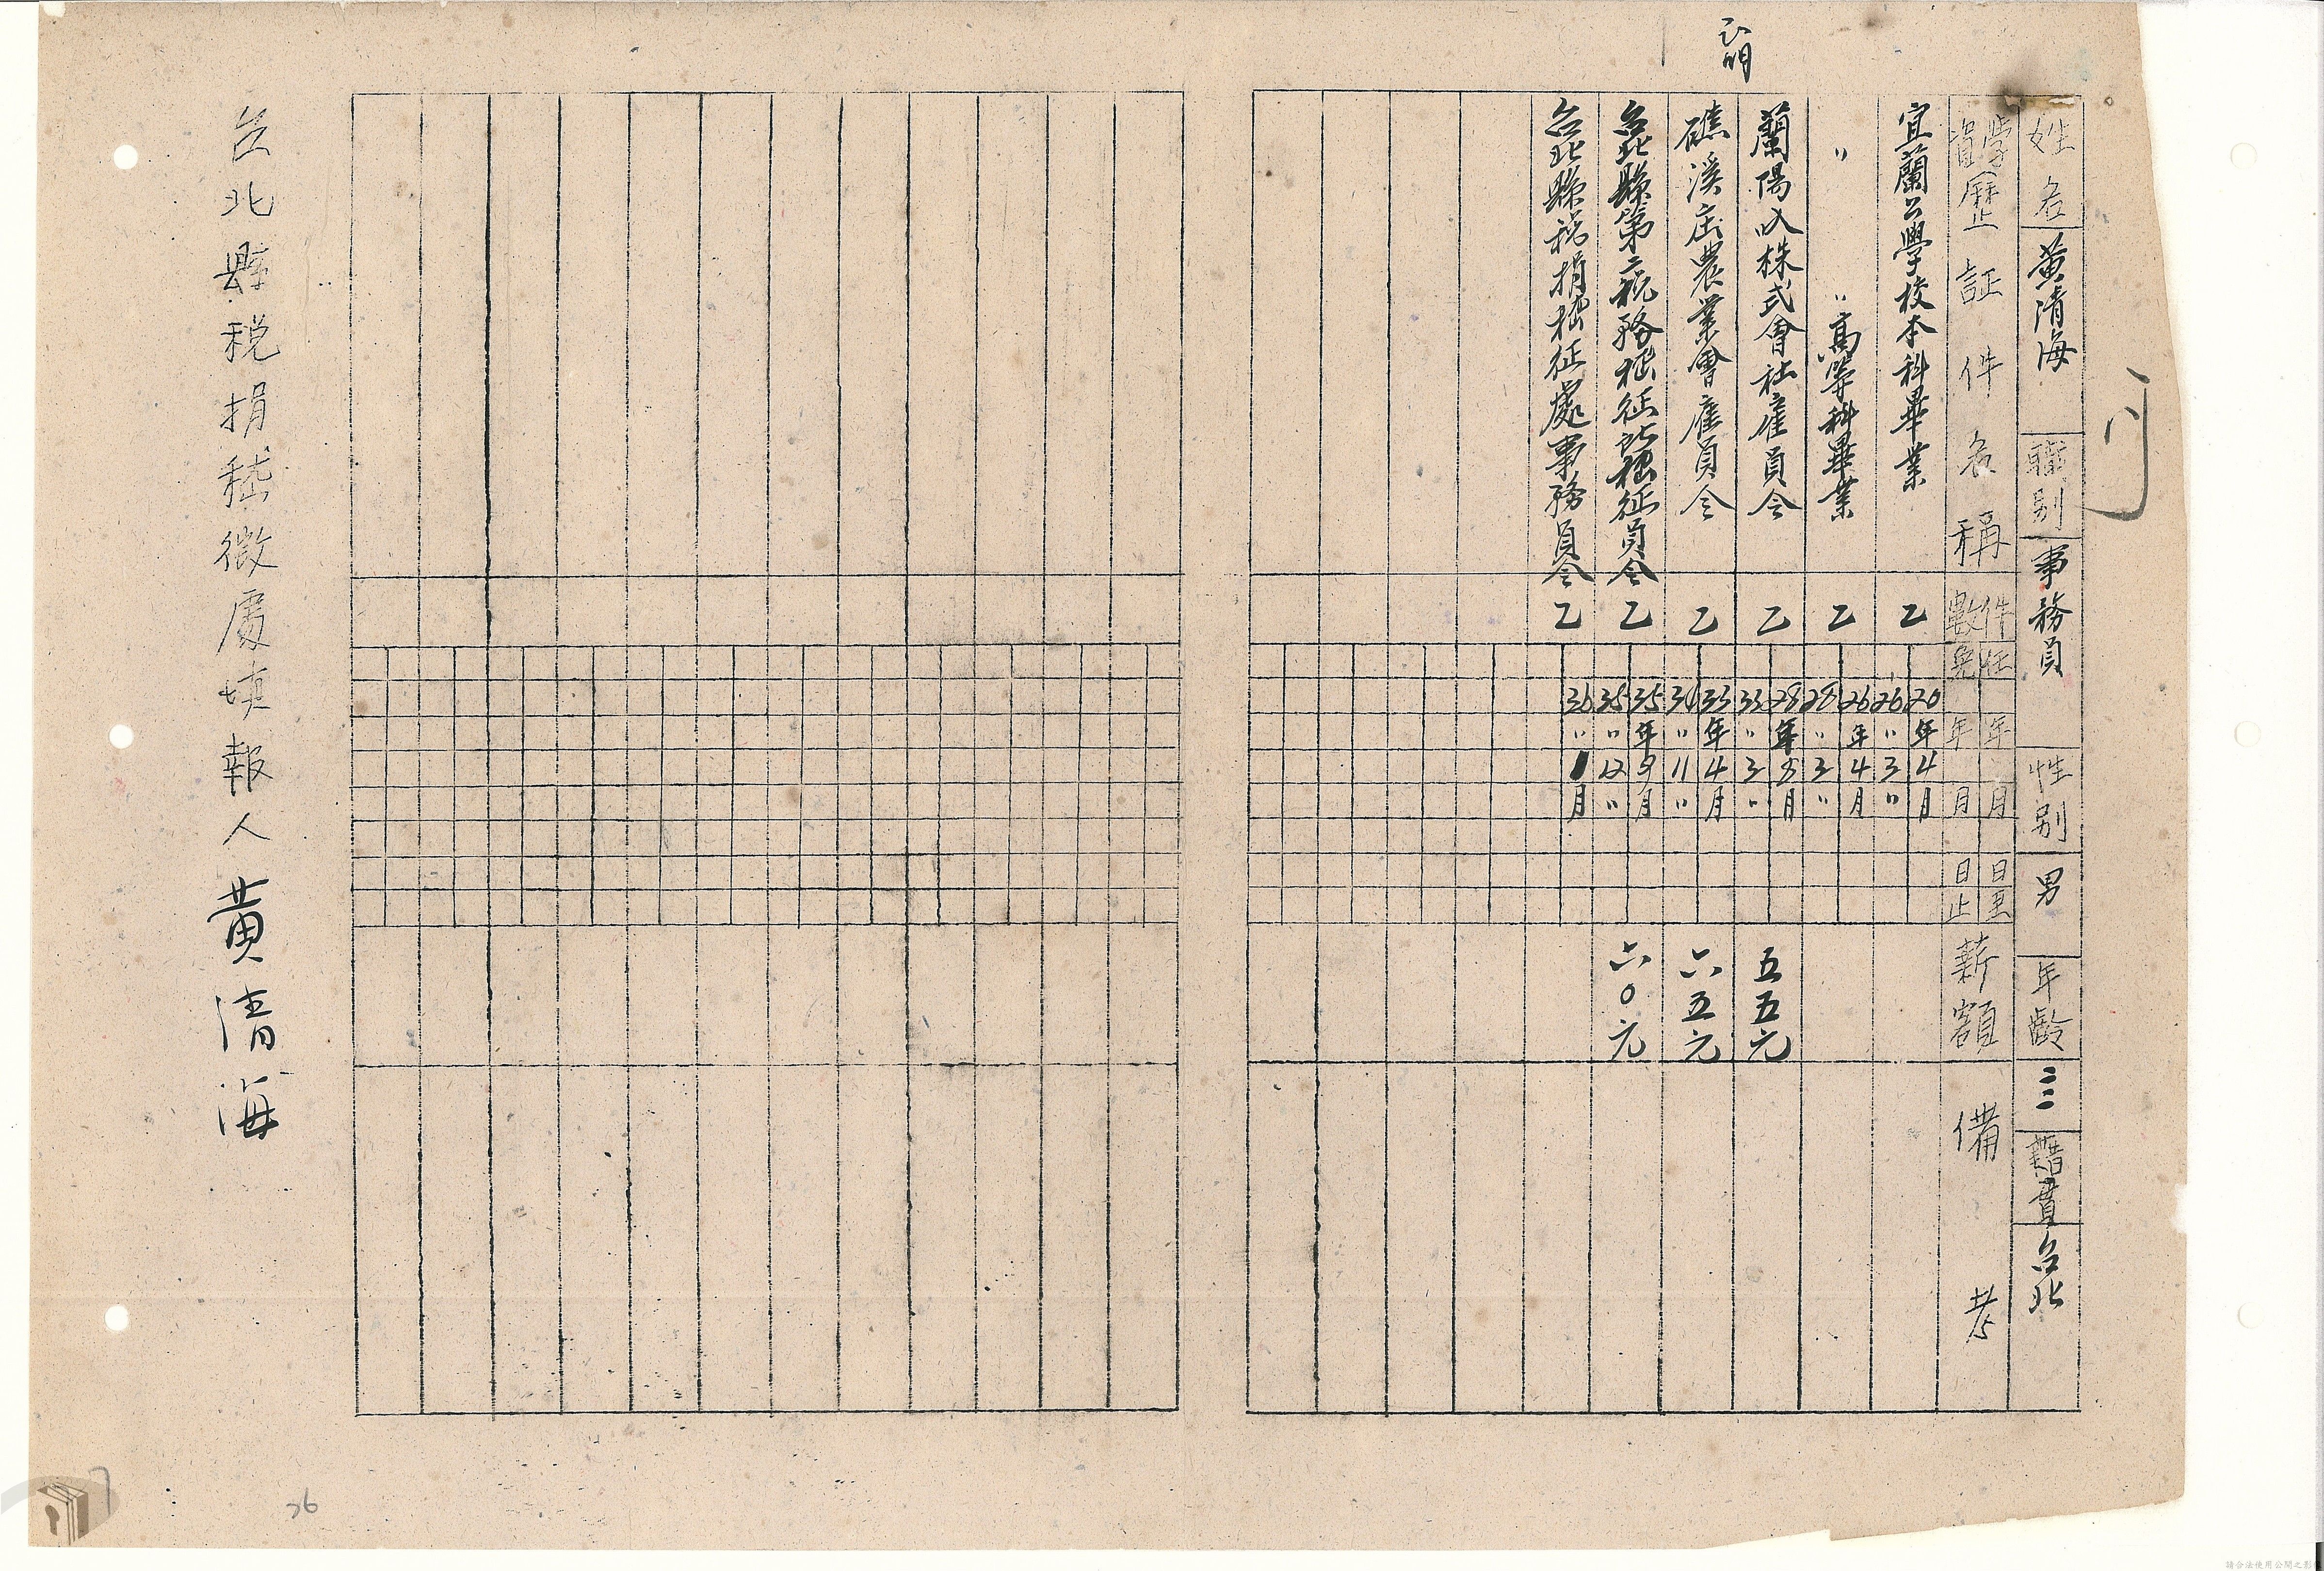 姓名 黃清海 職別 事務員 性別 男 年齡 三三 籍貫 台北
學資歷証件名稱 件數 任免 年月日至 年月日止 薪額 備考
宜蘭公學校本科畢業 乙 20年4月 26〃3〃
〃 〃高等科畢業 乙 26年4月 28〃3〃
蘭陽入株式會社雇員令 乙 28年8月 33〃3〃 五五元
礁溪庄農業會雇員令 乙 33年4月 34〃11〃 六五元
台北縣第二稅務稽征所稽征員令 乙 35年9月 35〃12〃 六〇元
台北縣稅捐稽征處事務員令 乙 36〃1月
台北縣税捐稽徵處填報人 黃清海
36
請合法使用公開之影像